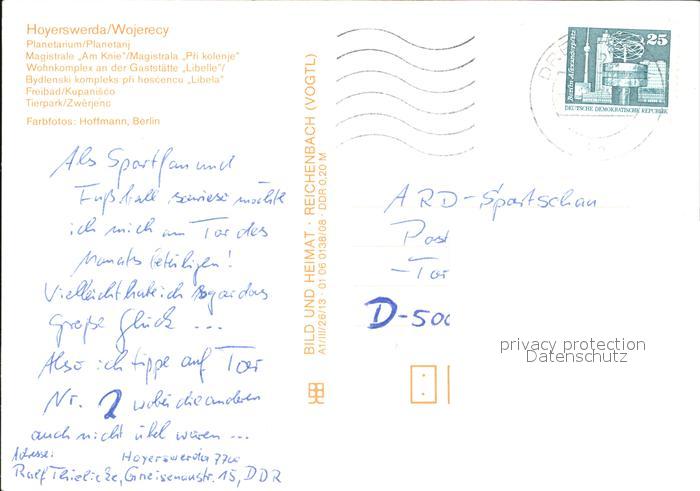 Hoyerswerda/Wojerecy
Planetarium/Planetarij
Magistrale „Am Knie"/Magistrala „Při kolenje"
Wohnkomplex an der Gaststätte „Libelle"/
Bydlenski kompleks při hosćencu „Libela"
Freibad/Kupanišćo
Tierpark/Zwěrjenc
Farbfotos: Hoffmann, Berlin
Als Sportfan und
Fußball sowieso möchte
ich mich am Tor des
Monats beteiligen!
Vielleicht habe ich sogar das
große Glück ...
Also ich tippe auf Tor
Nr. 2 wobei die anderen
auch nicht übel waren ...
Adresse: Hoyerswerda 7700
Ralf Thielicke, Gneisenaustr. 15, DDR
BILD UND HEIMAT · REICHENBACH (VOGTL)
A1/III/26/13 · 01 06 0138/08 · DDR 0,20 M
25
Berlin-Alexanderplatz
DEUTSCHE DEMOKRATISCHE REPUBLIK
ARD-Sportschau
Post
-Tor
D-500
privacy protection
Datenschutz